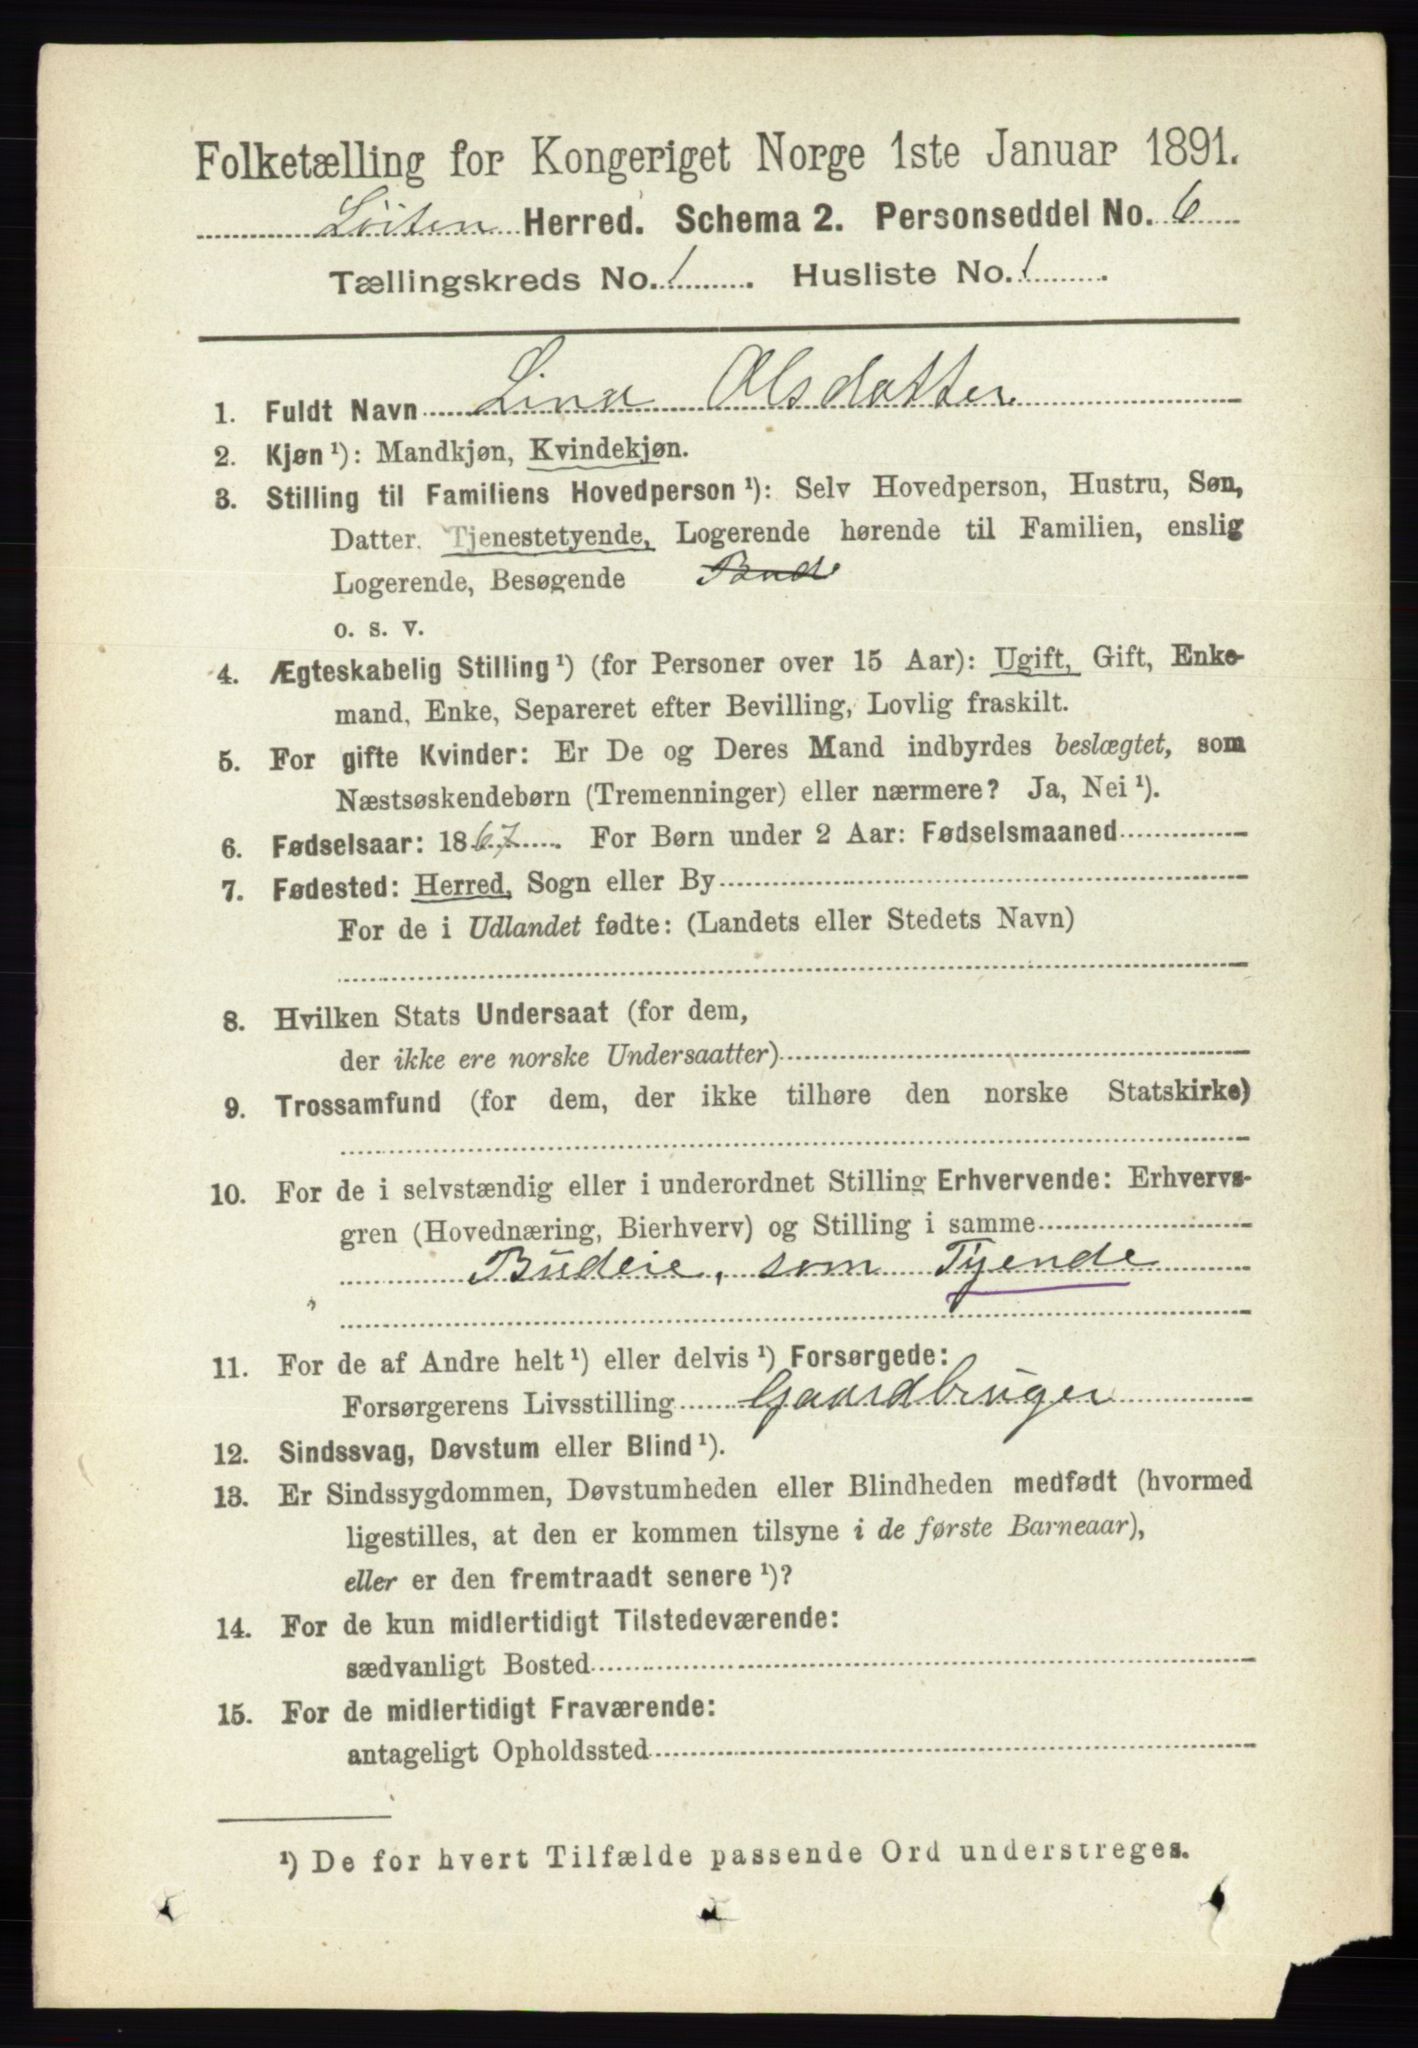 Folketælling for Kongeriget Norge 1ste Januar 1891.
Löiten Herred. Schema 2. Personseddel No. 6
Tællingskreds No. 1. Husliste No. 1.
1. Fuldt Navn Lina Olsdatter
2. Kjøn ¹): Mandkjøn, Kvindekjøn.
3. Stilling til Familiens Hovedperson ¹): Selv Hovedperson, Hustru, Søn,
Datter, Tjenestetyende, Logerende hørende til Familien, enslig
Logerende, Besøgende
o. s. v.
4. Ægteskabelig Stilling ¹) (for Personer over 15 Aar): Ugift, Gift, Enke-
mand, Enke, Separeret efter Bevilling, Lovlig fraskilt.
5. For gifte Kvinder: Er De og Deres Mand indbyrdes beslægtet, som
Næstsøskendebørn (Tremenninger) eller nærmere? Ja, Nei ¹).
6. Fødselsaar: 1867. For Børn under 2 Aar: Fødselsmaaned
7. Fødested: Herred, Sogn eller By
For de i Udlandet fødte: (Landets eller Stedets Navn)
8. Hvilken Stats Undersaat (for dem,
der ikke ere norske Undersaatter)
9. Trossamfund (for dem, der ikke tilhøre den norske Statskirke)
10. For de i selvstændig eller i underordnet Stilling Erhvervende: Erhvervs-
gren (Hovednæring, Bierhverv) og Stilling i samme
Budeie, som Tyende
11. For de af Andre helt ¹) eller delvis ¹) Forsørgede:
Forsørgerens Livsstilling Gaardbruger
12. Sindssvag, Døvstum eller Blind ¹).
13. Er Sindssygdommen, Døvstumheden eller Blindheden medfødt (hvormed
ligestilles, at den er kommen tilsyne i de første Barneaar),
eller er den fremtraadt senere ¹)?
14. For de kun midlertidigt Tilstedeværende:
sædvanligt Bosted
15. For de midlertidigt Fraværende:
antageligt Opholdssted
¹) De for hvert Tilfælde passende Ord understreges.